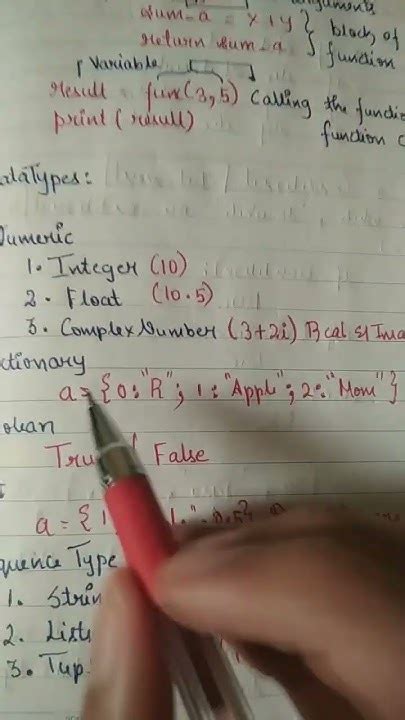 sum_a = x+y } block of
return sum_a function
Variable
Result = func(3,5) Calling the functio
print(result) function c
ataTypes:
Numeric
1. Integer (10)
2. Float (10.5)
3. Complex Number (3+2i) Real & Ima
ctionary
a= {0:"R"; 1:"Apple"; 2:"Mom"}
olean
Tru False
a = {1
quence Type
1. Strin
2. List
3. Tup